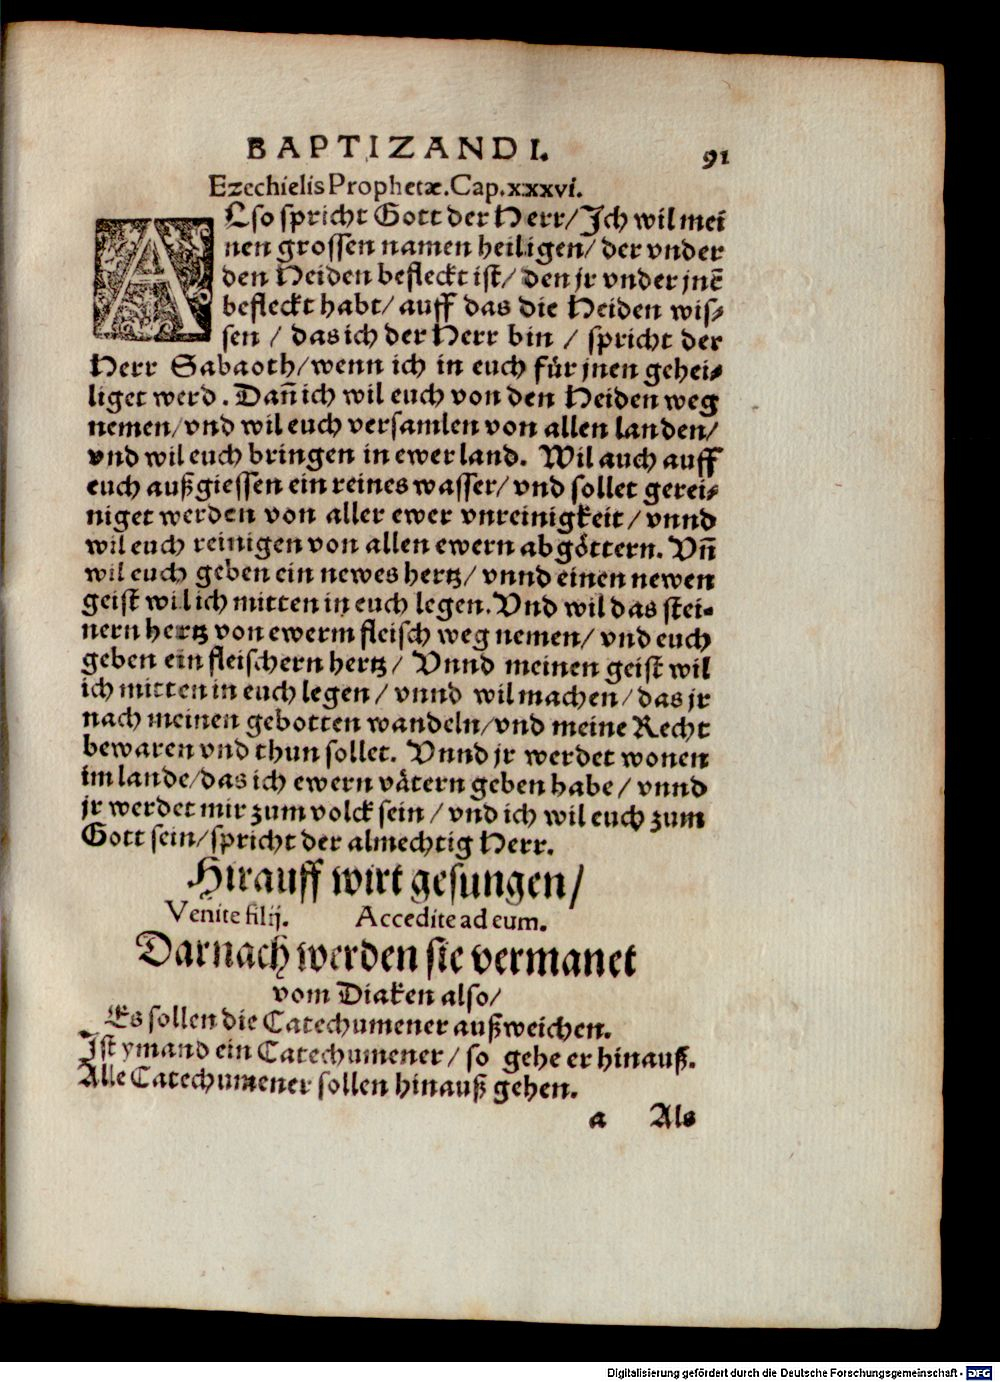 BAPTIZANDI. 91
Ezechielis Prophetæ. Cap. xxxvi.
ALso spricht Gott der Herr/ Jch wil mei
nen grossen namen heiligen/ der vnder
den Heiden befleckt ist/ den jr vnder jnē
befleckt habt/ auff das die Heiden wis⸗
sen / das ich der Herr bin / spricht der
Herr Sabaoth/ wenn ich in euch für jnen gehei⸗
liget werd. Dañ ich wil euch von den Heiden weg
nemen/ vnd wil euch versamlen von allen landen/
vnd wil euch bringen in ewer land. Wil auch auff
euch außgiessen ein reines wasser/ vnd sollet gerei⸗
niget werden von aller ewer vnreinigkeit / vnnd
wil euch reinigen von allen ewern abgöttern. Vñ
wil euch geben ein newes hertz/ vnnd einen newen
geist wil ich mitten in euch legen. Vnd wil das stei⸗
nern hertz von ewerm fleisch weg nemen/ vnd euch
geben ein fleischern hertz/ Vnnd meinen geist wil
ich mitten in euch legen / vnnd wil machen / das jr
nach meinen gebotten wandeln/ vnd meine Recht
bewaren vnd thun sollet. Vnnd jr werdet wonen
im lande/ das ich ewern vätern geben habe / vnnd
jr werdet mir zum volck sein / vnd ich wil euch zum
Gott sein/ spricht der almechtig Herr.
Hirauff wirt gesungen/
Venite filij. Accedite ad eum.
Darnach werden sie vermanet
vom Diaken also/
Es sollen die Catechumener außweichen.
Jst ymand ein Catechumener / so gehe er hinauß.
Alle Catechumener sollen hinauß gehen.
a Als
Digitalisierung gefördert durch die Deutsche Forschungsgemeinschaft - DFG